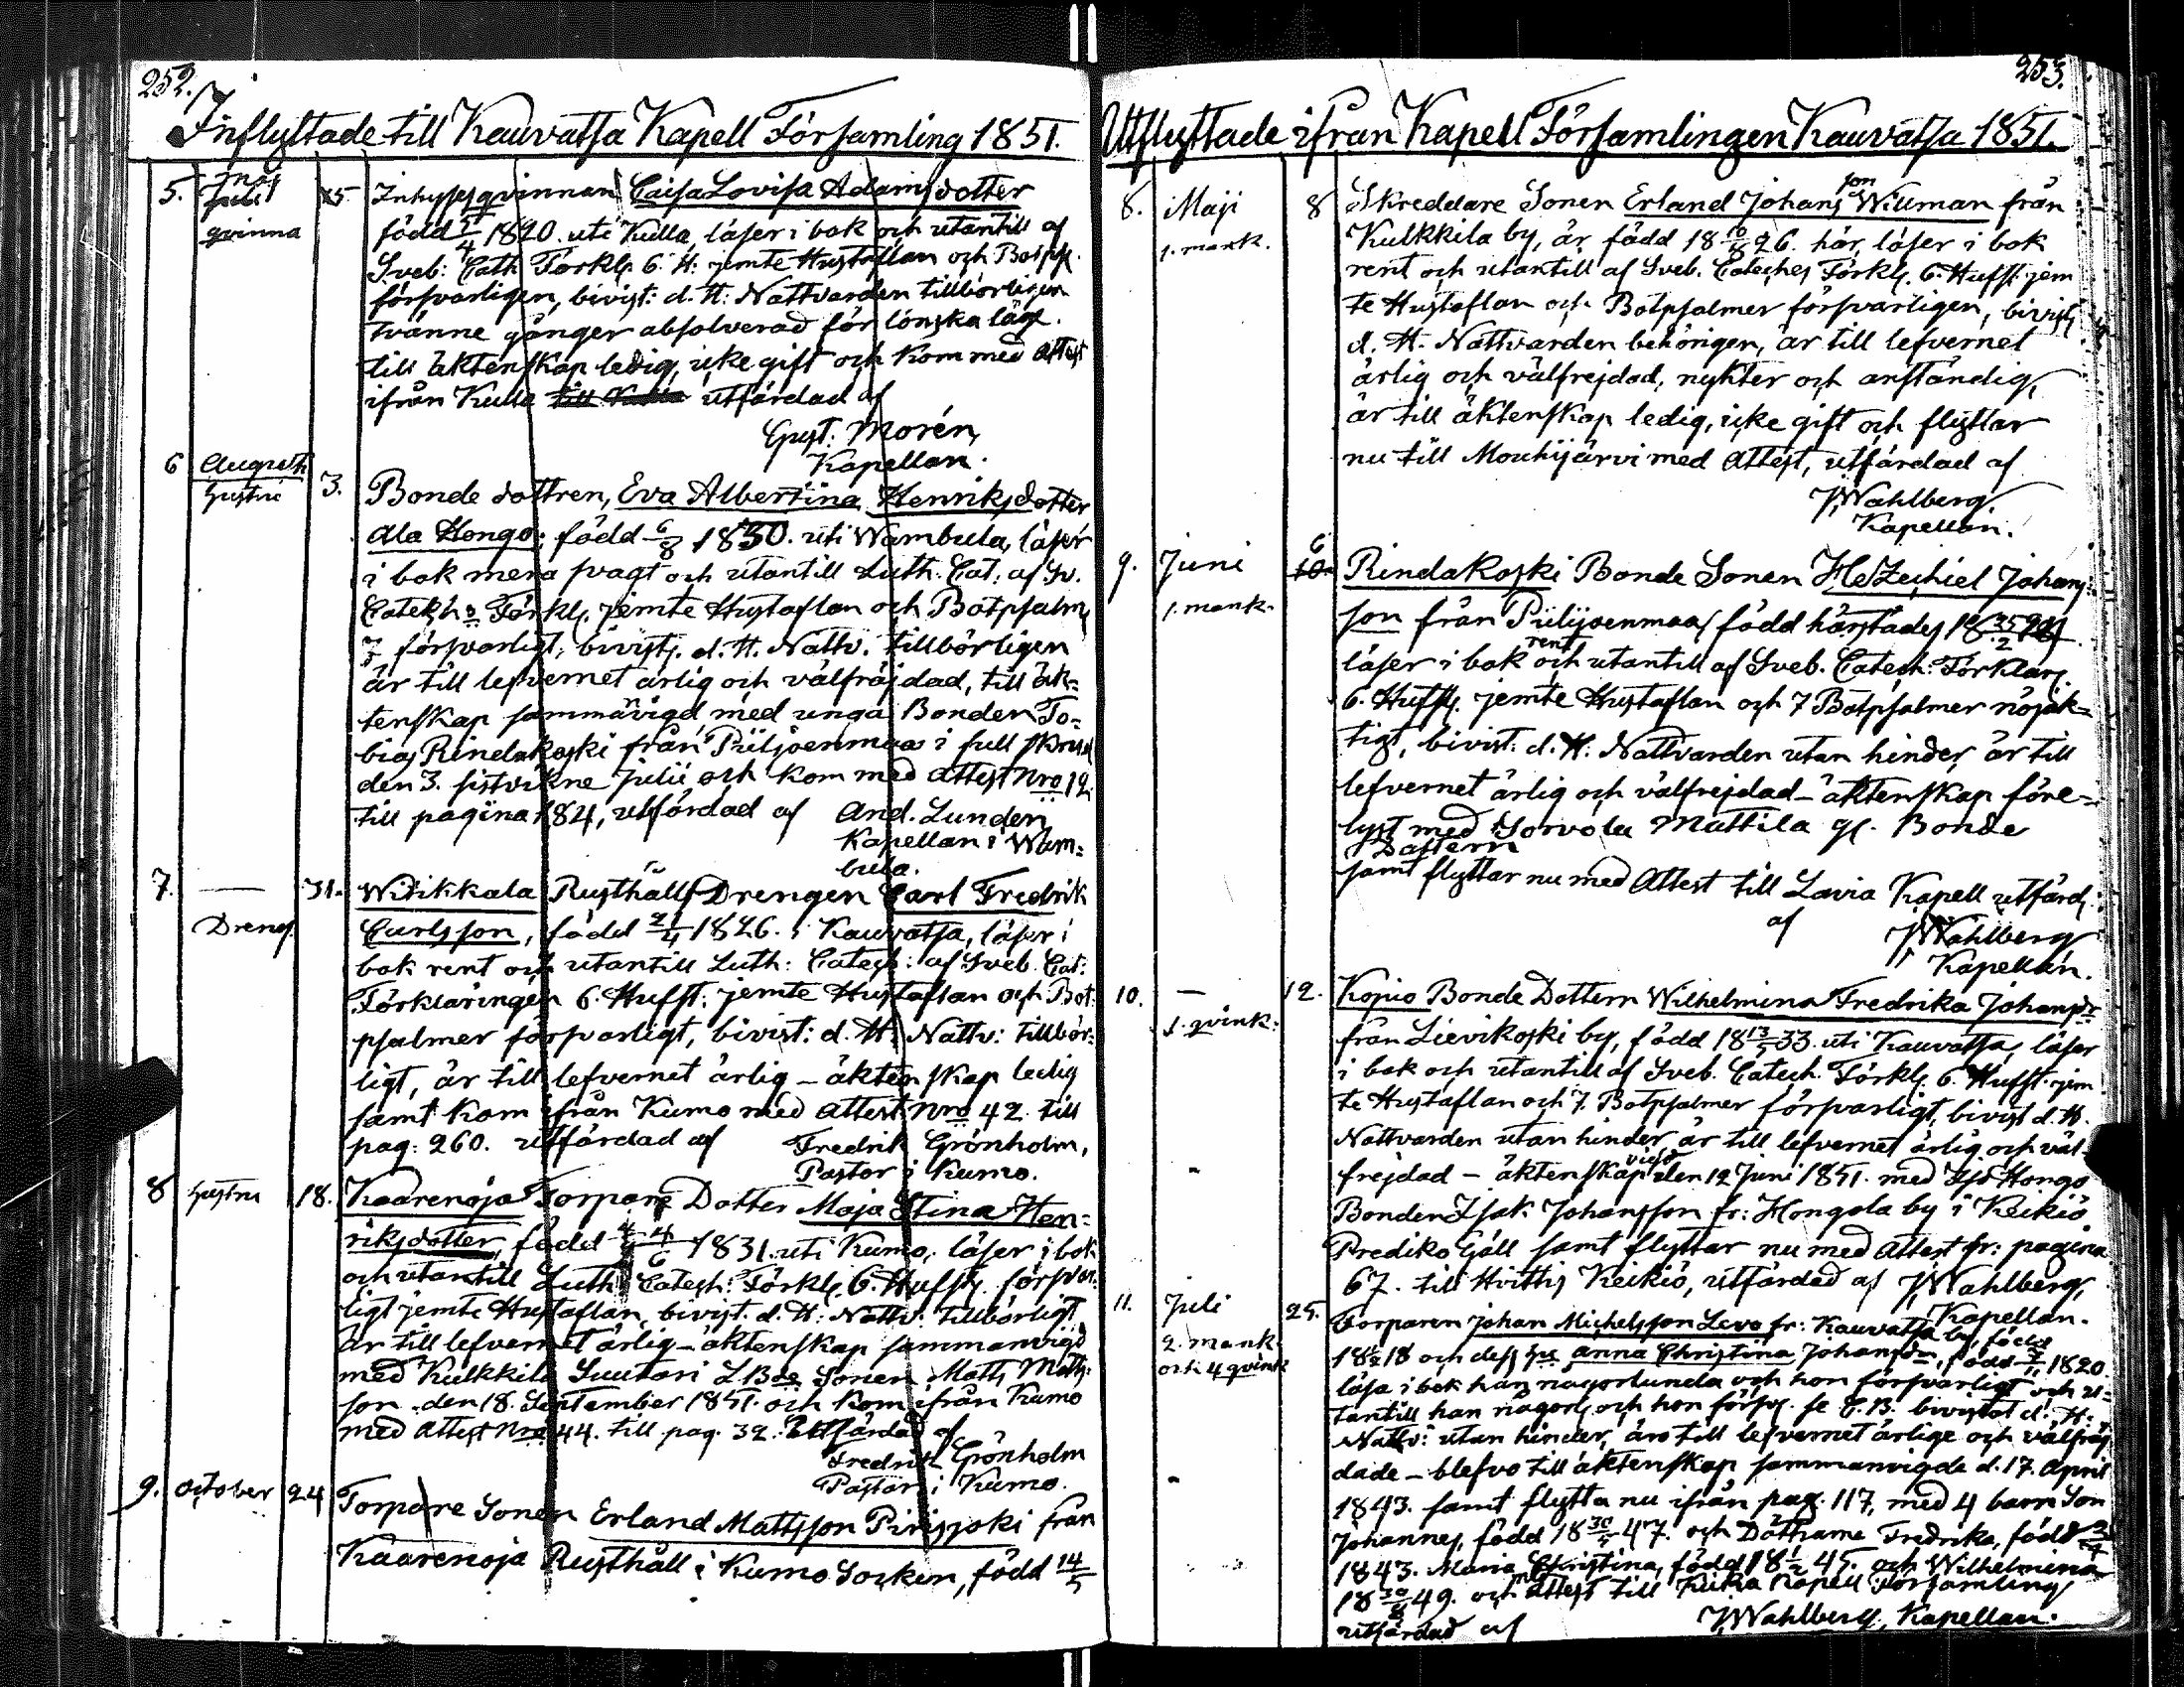 252.
Inflyttade till Kauvatsa Kapell Församling 1851.
5. Juli 15. Inhyses qvinnan Caisa Lovisa Adamsdotter
qvinna
född 1820. uti Kulla, läser i bok och utantill af
Sveb: Cath. Förkls 6. H: jemte Hustaflan och Botps.
försvarligen, bivist: d. H: Nattvarden tillbörligen
tvänne gånger absolverad för lönska läge.
till äktenskap ledig, icke gift och kom med Attest
ifrån Kulla utfärdad af
Gust. Morén,
Kapellan.
6 Augusti 3. Bonde dottren, Eva Albertina Henriksdotter
hustru
Ala Hongo; född 6/8 1830. uti Wambula, läser
i bok mera svagt och utantill Luth. Cat: af Sv.
Catekhs Förkls. jemte Hustaflan och Botpsalm
7 försvarligt, bivists. d. H. Nattv. tillbörligen
är till lefvernet ärlig och välfräjdad, till äk=
tenskap sammanvigd med unga Bonden To=
bias Rindakoski från Piiljoenmaa i full
den 3. sistvikne Julii och kom med attest Nro 12
till pagina 184, utfärdad af And. Lunden
Kapellan i Wam=
bula.
7. — 31. Witikkala Rusthålls Drengen Carl Fredrik
Dreng.
Carlsson, född 1826. i Kauvatsa, läser i
bok rent och utantill Luth: Catech: af Sveb. Cat:
Förklaringen 6. Hufst: jemte Hustaflan och Bot:
psalmer försvarligt, bivist: d. H: Nattv: tillbör:
ligt, är till lefvernet ärlig – äktenskap ledig
samt kom ifrån Kumo med Attest Nro 42. till
pag: 260. utfärdad af Fredrik Grönholm,
Pastor i Kumo.
8 hustru 18. Kaarenoja Torpare Dotter Maja Stina Hen=
riksdotter, född 4/6 1831. uti Kumo, läser i bok
och utantill Luth Catech: Förkls. 6. Hufst. försvar
ligt jemte Hustaflan, bivist. d. H: Nattv: tillbörligt
är till lefvernet ärlig – äktenskap sammanvigd
med Kulkkila Suutari L Bde Sonen Matts Matts:
son den 18. September 1851. och kom ifrån Kumo
med Attest Nro 44. till pag. 32. Utfärdad af
Fredrik Grönholm
Pastor i Kumo.
9. October 24 Torpare Sonen Erland Mattsson Pirisjoki från
Kaarenoja Rusthåll i Kumo Socken, född 14/5
253.
Utflyttade ifrån Kapell Församlingen Kauvatsa 1851.
8. Maji 8 Skreddare Sonen Erland Johansson Willman från
1. mank.
Kulkkila by, är född 18 26. här, läser i bok
rent och utantill af Sveb. Cateches Förkls. 6. Hufst. jem
te Hustaflan och Botpsalmer försvarligen, bivists
d. H. Nattvarden behörigen, är till lefvernet
ärlig och välfrejdad, nykter och anständig,
är till äktenskap ledig, icke gift och flyttar
nu till Mouhijärvi med Attest, utfärdad af
J Wahlberg,
Kapellan.
9. Juni 6 Rindakoski Bonde Sonen Hezechiel Johans=
1. mank.
son från Piilijoenmaa, född härstädes
läser i bok rent och utantill af Sveb. Catech: Förklar.
6. Hufst. jemte Hustaflan och 7 Botpsalmer nöjak=
tigt, bivist: d. H: Nattvarden utan hinder, är till
lefvernet ärlig och välfrejdad – äktenskap före=
lyst med Sorvola Mattila Bonde
Dottern
samt flyttar nu med Attest till Lavia Kapell utfärd.
af J Wahlberg
Kapellan.
10. — 12. Kopio Bonde Dottern Wilhelmina Fredrika Johansdr
1. qvink:
från Lievikoski by, född 18 13/5 33. uti Kauvatsa, läser
i bok och utantill af Sveb. Catech. Förkls. 6. Hufst. jem
te Hustaflan och 7. Botpsalmer försvarligt, bivist d. H.
Nattvarden utan hinder, är till lefvernet ärlig och väl=
frejdad – äktenskap vigd den 12 Juni 1851. med Iso Hongo
Bonden Isak Johansson fr: Hongola by i Keikiö
Prediko Gäll samt flyttar nu med Attest fr: pagina
67. till Hvittis Keikiö, utfärdad af J Wahlberg,
Kapellan.
11. Juli 25. Torparen Johan Michelsson Levo fr: Kauvatsa by, född
2. mank.
och 4 qvink
18 18 och dess hu Anna Christina Johansdr, född 1820
läsa i bok han någorlunda och hon försvarligt och u=
tantill han någorl. och hon försv. se C. B. bivistat d. H.
Nattv: utan hinder, äro till lefvernet ärlige och välfräj
dade – blefvo till äktenskap sammanvigde d. 17. April
1843. samt flytta nu ifrån pag. 117, med 4 barn Son
Johannes, född 18 30/5 47. och Döttrarne Fredrika, född
1843. Maria Christina, född 18 1/2 45. och Wilhelmina
18 30/8 49. och med attest till Keikiö Kapell Församling
utfärdad af J Wahlberg, Kapellan.